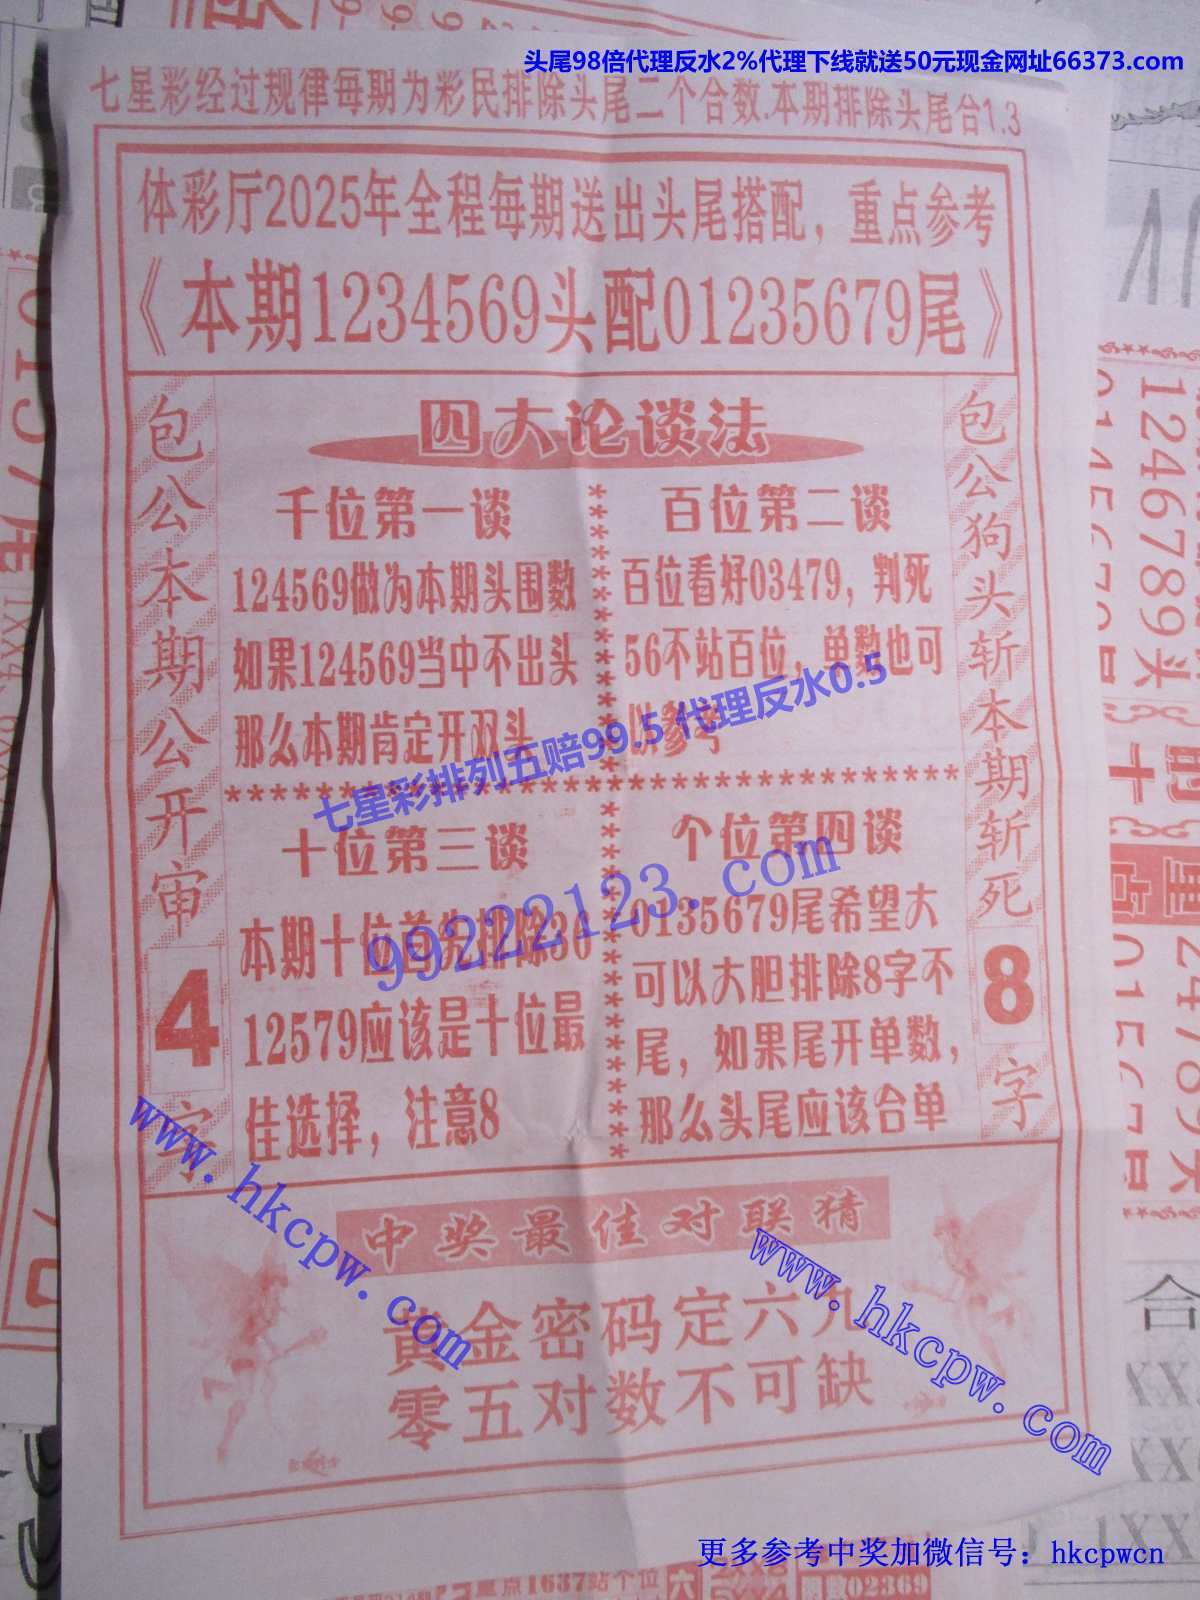 头尾98倍代理反水2%代理下线就送50元现金网址66373.com
七星彩经过规律每期为彩民排除头尾二个合数.本期排除头尾合1.3
体彩厅2025年全程每期送出头尾搭配，重点参考
《本期1234569头配01235679尾》
包公本期公开审4字
四大论谈法
千位第一谈
124569做为本期头围数
如果124569当中不出头
那么本期肯定开双头
百位第二谈
百位看好03479，判死
56不站百位，单数也可
以参考
七星彩排列五赔99.5 代理反水0.5
十位第三谈
本期十位首先排除36
12579应该是十位最
佳选择，注意8
99222123.com
个位第四谈
0135679尾希望大
可以大胆排除8字不
尾，如果尾开单数，
那么头尾应该合单
包公狗头斩本期斩死8字
www.hkcpw.com
www.hkcpw.com
中奖最佳对联猜
黄金密码定六九
零五对数不可缺
更多参考中奖加微信号：hkcpwcn
重点1637站个位
02369
1246789头